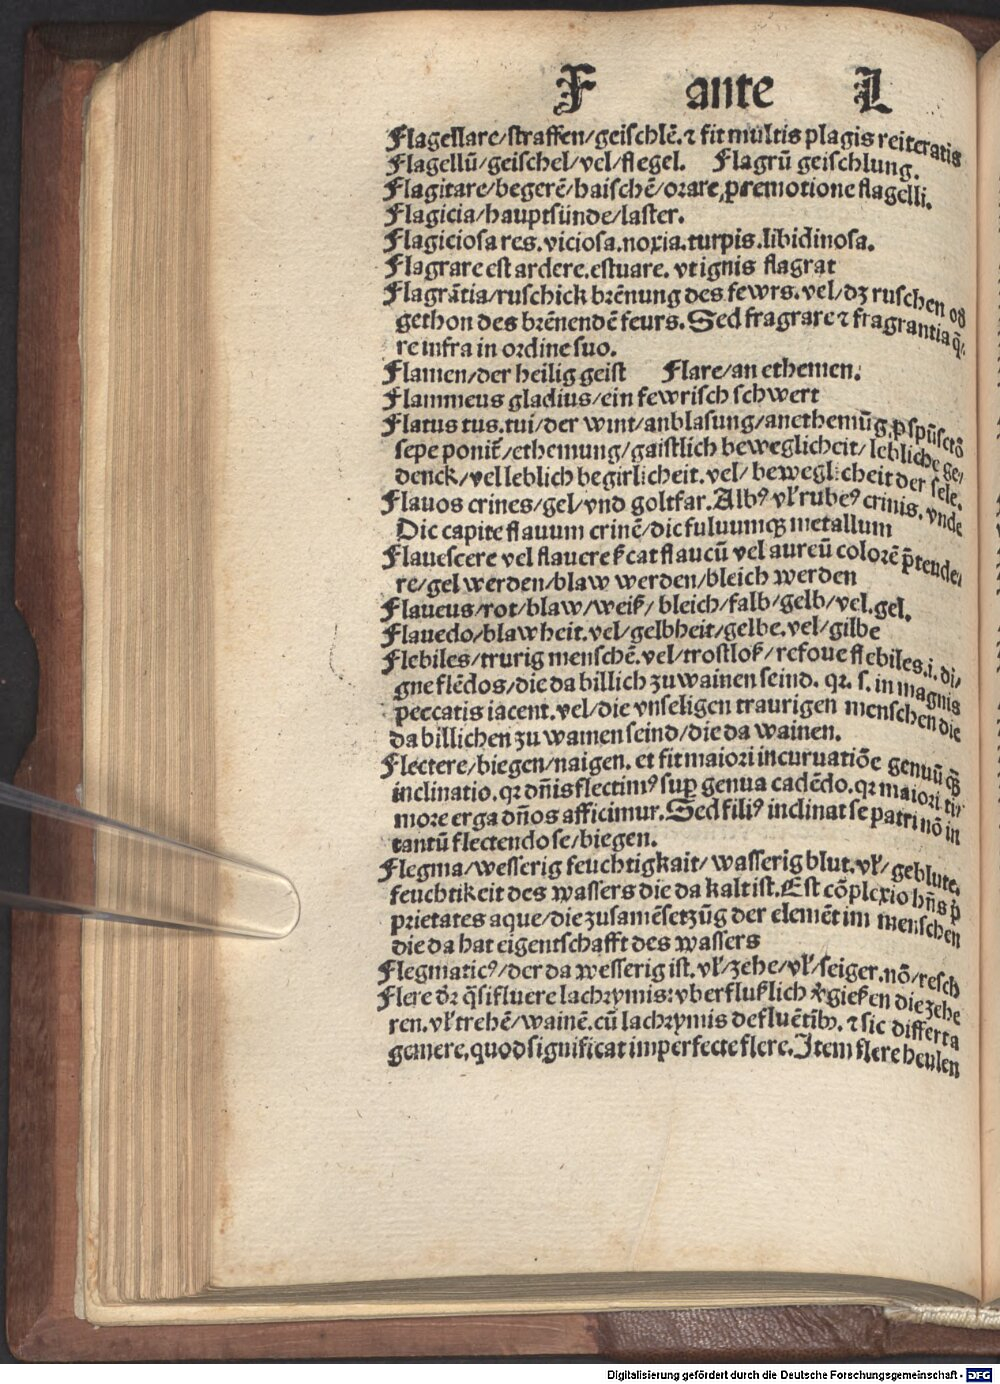 F ante L
Flagellare/straffen/geischlē.⁊ fit multis plagis reiteratis
Flagellū/geischel/vel/flegel. Flagrū geischlung.
Flagitare/begerē/haischē/orare,p̄remotione flagelli.
Flagicia/hauptsünde/laster.
Flagiciosa res.viciosa.noxia.turpis.libidinosa.
Flagrare est ardere.estuare. vt ignis flagrat
Flagrātia/ruschick brēnung des fewrs.vel/dz ruschen od
gethon des brēnendē feurs. Sed fragrare ⁊ fragrantia q̄/
re infra in ordine suo.
Flamen/der heilig geist Flare/an ethemen.
Flammeus gladius/ein fewrisch schwert
Flatus tus.tui/der wint/anblasung/anethemūg,p sp̄ūsctō
sepe ponit̄/ethemung/gaistlich beweglicheit/lebliche ge/
denck/vel leblich begirlicheit.vel/beweglicheit der sele.
Flauos crines/gel/vnd goltfar.Albꝰ vl̄ rubeꝰ crinis. vnde
Dic capite flauum crinē/dic fuluumqꝫ metallum
Flauescere vel flauere ẜcat flaucū vel aureū colorē p̄tende/
re/gel werden/blaw werden/bleich werden
Flaueus/rot/blaw/weiß/bleich/falb/gelb/vel.gel.
Flauedo/blawheit.vel/gelbheit/gelbe.vel/gilbe
Flebiles/trurig menschē.vel/trostloß/refoue flebiles.i.di/
gne flēdos/die da billich zu wainen seind. qr. s. in magnis
peccatis iacent.vel/die vnseligen traurigen menschen die
da billichen zu wainen seind/die da wainen.
Flectere/biegen/naigen. et fit maiori incuruatiōe genuū qꝫ̄
inclinatio.qr dn̄is flectimꝰ sup̄ genua cadēdo.qr maiori ti/
more erga dn̄os afficimur.Sed filiꝰ inclinat se patri nō in
tantū flectendo se/biegen.
Flegma/wesserig feuchtigkait/wasserig blut.vl̄/geblute.
feuchtikeit des wassers die da kalt ist.Est cōplexio hn̄s p̄
prietates aque/die zusamēsetzūg der elemēt im menschen
die da hat eigentschafft des wassers
Flegmaticꝰ/der da wesserig ist.vl̄/zehe/vl̄/seiger.nō/resch
Flere dr̄ q̄si fluere lachrymis:vberflußlich v̄gießen die zehe
ren.vl̄ trehē/wainē.cū lachrymis defluētibꝫ. ⁊ sic differt a
gemere,quod significat imperfecte flere.Item flere heulen
Digitalisierung gefördert durch die Deutsche Forschungsgemeinschaft - DFG